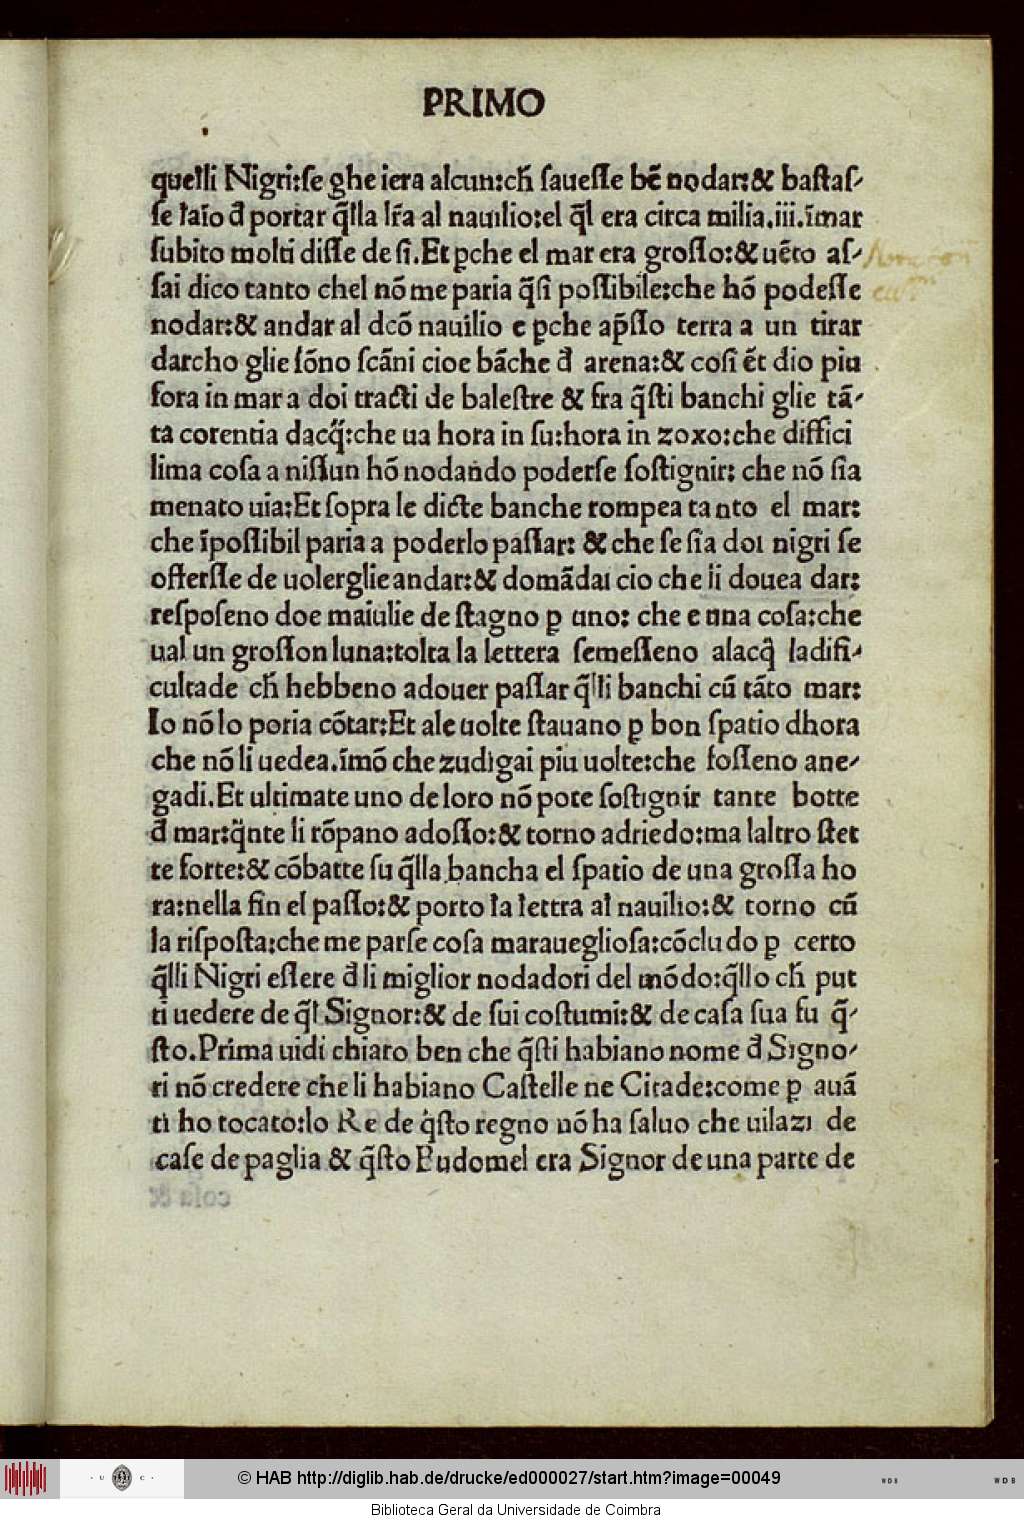 PRIMO
quelli Nigri:se ghe iera alcun:ch̄ saueſſe bē nodar:& baſtaſ-
ſe laīo đ portar q̄lla lr̄a al nauilio:el q̄l era circa milia.iii.ī mar
ſubito molti diſſe de ſi.Et ꝑche el mar era groſſo:& uēto aſ-
ſai dico tanto chel nō me paria q̄ſi poſſibile:che hō podeſſe
nodar:& andar al dcō nauilio e ꝑche ap̄ſſo terra a un tirar
darcho glie ſōno ſcāni cioe bāche đ arena:& coſi ēt dio piu
fora in mar a doi tracti de baleſtre & fra q̄ſti banchi glie tā-
ta corentia dacq̄:che ua hora in ſu:hora in zoxo:che diffici
lima coſa a niſſun hō nodando poderſe ſoſtignir: che nō ſia
menato uia:Et ſopra le dicte banche rompea tanto el mar:
che īpoſſibil paria a poderlo paſſar: & che ſe ſia doi nigri ſe
offerſſe de uolerglie andar:& domādai cio che li douea dar:
reſpoſeno doe maiulie de ſtagno ꝑ uno: che e una coſa:che
ual un groſſon luna:tolta la lettera ſemeſſeno alacq̄ ladifi-
cultade ch̄ hebbeno adouer paſſar q̄lli banchi cū tāto mar:
Io nō lo poria cōtar:Et ale uolte ſtauano ꝑ bon ſpatio dhora
che nō li uedea.īmō che zudigai piu uolte:che foſſeno ane-
gadi.Et ultimate uno de loro nō pote ſoſtignir tante botte
đ mar:q̄nte li rōpano adoſſo:& torno adriedo:ma laltro ſtet
te forte:& cōbatte ſu q̄lla bancha el ſpatio de una groſſa ho
ra:nella fin el paſſo:& porto la lettra al nauilio:& torno cū
la riſpoſta:che me parſe coſa maraueglioſa:cōcludo ꝑ certo
q̄lli Nigri eſſere đ li miglior nodadori del mōdo:q̄llo ch̄ put
ti uedere de q̄l Signor:& de ſui coſtumi:& de caſa ſua fu q̄-
ſto.Prima uidi chiaro ben che q̄ſti habiano nome đ Signo-
ri nō credere che li habiano Caſtelle ne Citade:come ꝑ auā
ti ho tocato:lo Re de q̄ſto regno nō ha ſaluo che uilazi de
caſe de paglia & q̄ſto Budomel era Signor de una parte de
© HAB http://diglib.hab.de/drucke/ed000027/start.htm?image=00049
Biblioteca Geral da Universidade de Coimbra